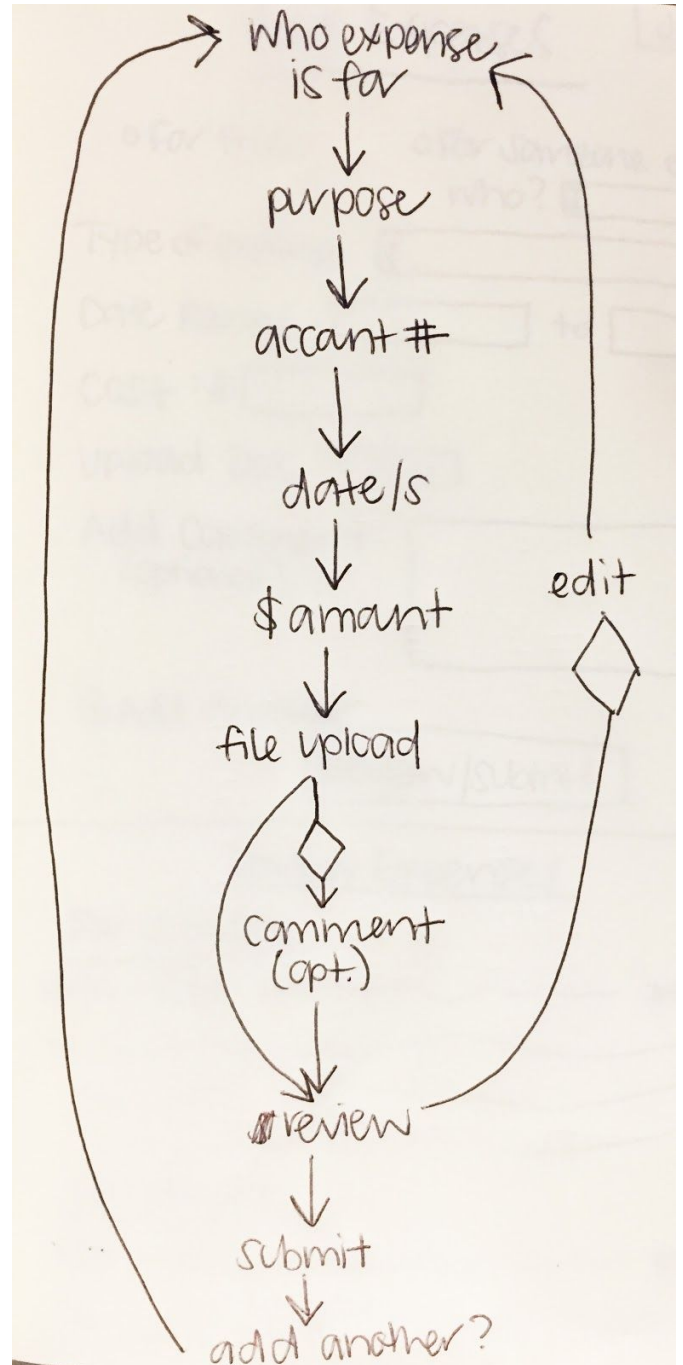 who expense
is for
purpose
account #
date/s
$ amount
edit
file upload
comment
(opt.)
review
submit
add another?